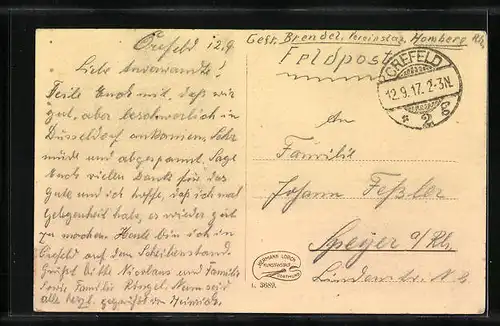 Gefr. Brendel, Vereinslaz. Homberg Rh.
Feldpost
CREFELD
12.9.17. 2-3N.
* 2 g
Crefeld 12.9
Liebe Anverwandte!
Teile Euch mit, daß wir
gut, aber beschwerlich in
Düsseldorf ankamen. Sehr
müde und abgespannt. Sage
Euch vielen Dank für das
Gute und ich hoffe, daß ich mal
Gelegenheit habe, es wieder gut
zu machen. Heute bin ich in
Crefeld auf dem
Grüßt bitte Nicolaus und Familie
sowie Familie Nun seid
alle herzl. gegrüßt von Heinrich.
An
Familie
Johann Feßler
Speyer a/Rh.
HERMANN LORCH
KUNSTVERLAG
DORTMUND
L. 3689.